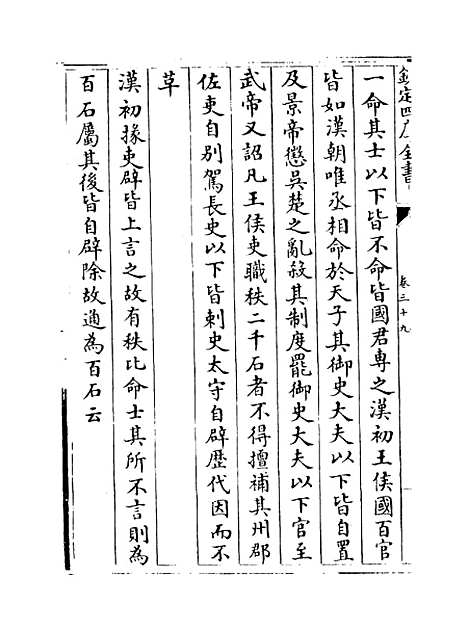 欽定四庫全書
卷三十九
一命其士以下皆不命皆國君專之漢初王侯國百官
皆如漢朝唯丞相命於天子其御史大夫以下皆自置
及景帝懲吳楚之亂殺其制度罷御史大夫以下官至
武帝又詔凡王侯吏職秩二千石者不得擅補其州郡
佐吏自別駕長史以下皆刺史太守自辟歴代因而不
草
漢初掾吏辟皆上言之故有秩比命士其所不言則為
百石屬其後皆自辟除故通為百石云